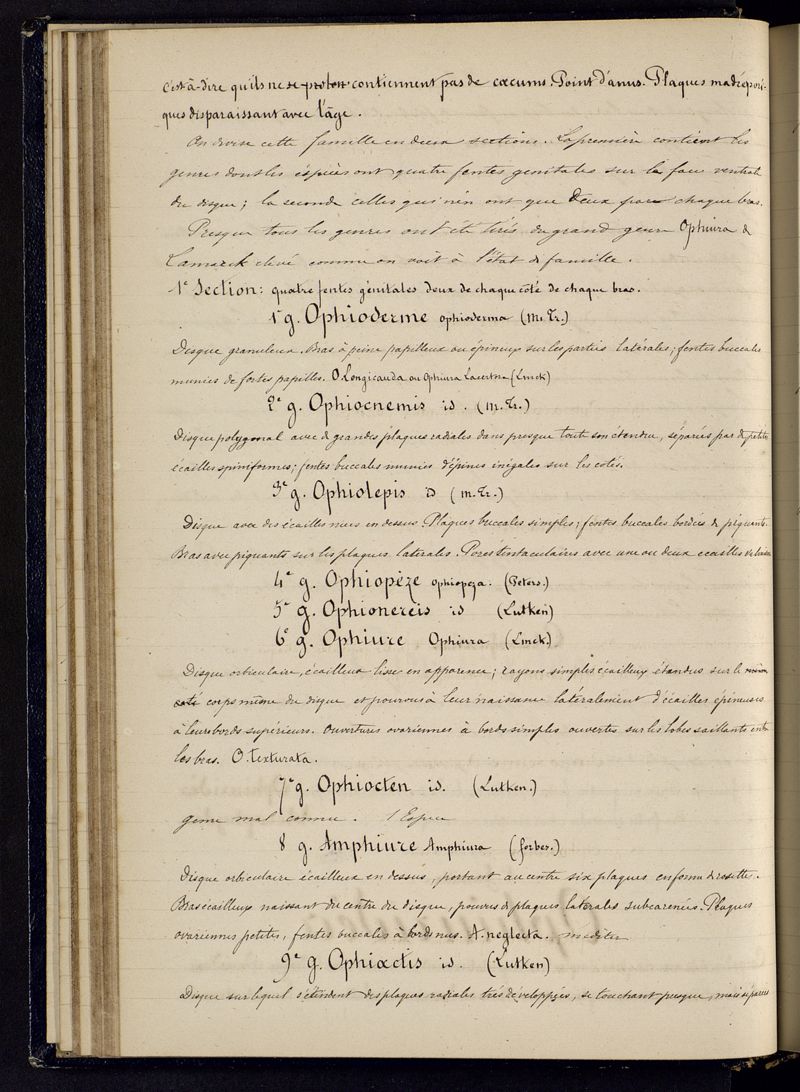 c'est à-dire qu'ils ne se prolon contiennent pas de cœcums. Point d'anus. Plaques madrépori-
ques disparaissant avec l'âge.
On divise cette famille en deux sections. La première contient les
genres dont les éspèces ont quatre fentes genitales sur la face ventrale
du disque ; la seconde celles qui n'en ont que deux pour chaque bras.
Presque tous les genres ont été tirés du grand genre Ophiura de
Lamarck élevé comme on voit à l'état de famille.
1e Section : quatre fentes génitales deux de chaque coté de chaque bras.
1e g. Ophioderme ophioderma (M. Tr.)
Disque granuleux. Bras à peine papilleux ou épineux sur les parties latérales ; fentes buccales
munies de fortes papilles. O. Longicauda ou Ophiura Lacertna (Lmck)
2e g. Ophiocnemis id. (M. Tr.)
Disque polygonal avec de grandes plaques radiales dans presque toute son étendue, séparées par de petites
écailles spiniformes ; fentes buccales munies d'épines inégales sur les cotés.
3e g. Ophiolepis id (M. Tr.)
Disque avec des écailles nues en dessus. Plaques buccales simples ; fentes buccales bordées de piquants.
Bras avec piquants sur les plaques latérales. Pores tentaculaires avec une ou deux ecailles
4e g. Ophiopèze ophiopeza. (Peters.)
5e g. Ophionereis id (Lutken)
6e g. Ophiure Ophiura (Lmck)
Disque orbiculaire, écailleux lisse en apparence ; rayons simples écailleux étendus sur le
coté corps même du disque et pourvus à leur naissance latéralement d'écailles épineuses
à leurs bords supérieurs. Ouvertures ovariennes à bords simples ouvertes sur les lobes saillants entre
les bras. O. texturata.
7e g. Ophiocten id. (Lutken.)
genre mal connu. 1 Espèce
8 g. Amphiure Amphiura (forbes.)
Disque orbiculaire écailleux en dessus, portant au centre six plaques en forme de rosette.
Bras écailleux naissant du centre du disque, pourvus de plaques latérales subcarénées. Plaques
ovariennes petites, fentes buccales à bords nus. A. neglecta. mediter
9e g. Ophiactis id. (Lutken)
Disque sur lequel s'étendent des plaques radiales très développées, se touchant presque, mais séparées